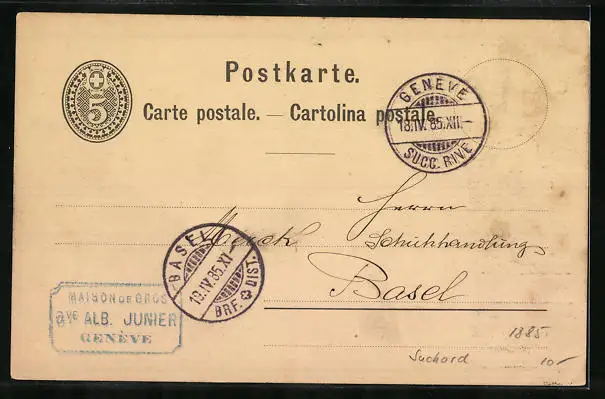 Postkarte.
5
Carte postale. — Cartolina postale.
GENÈVE
18.IV.85.XII—
SUCC. RIVE
Herrn
Schuhhandlung
Basel
BASEL
19.IV.85.XI
BRF. DIST.
MAISON DE GROS
ALB. JUNIER
GENÈVE
1885
Suchard 10.-